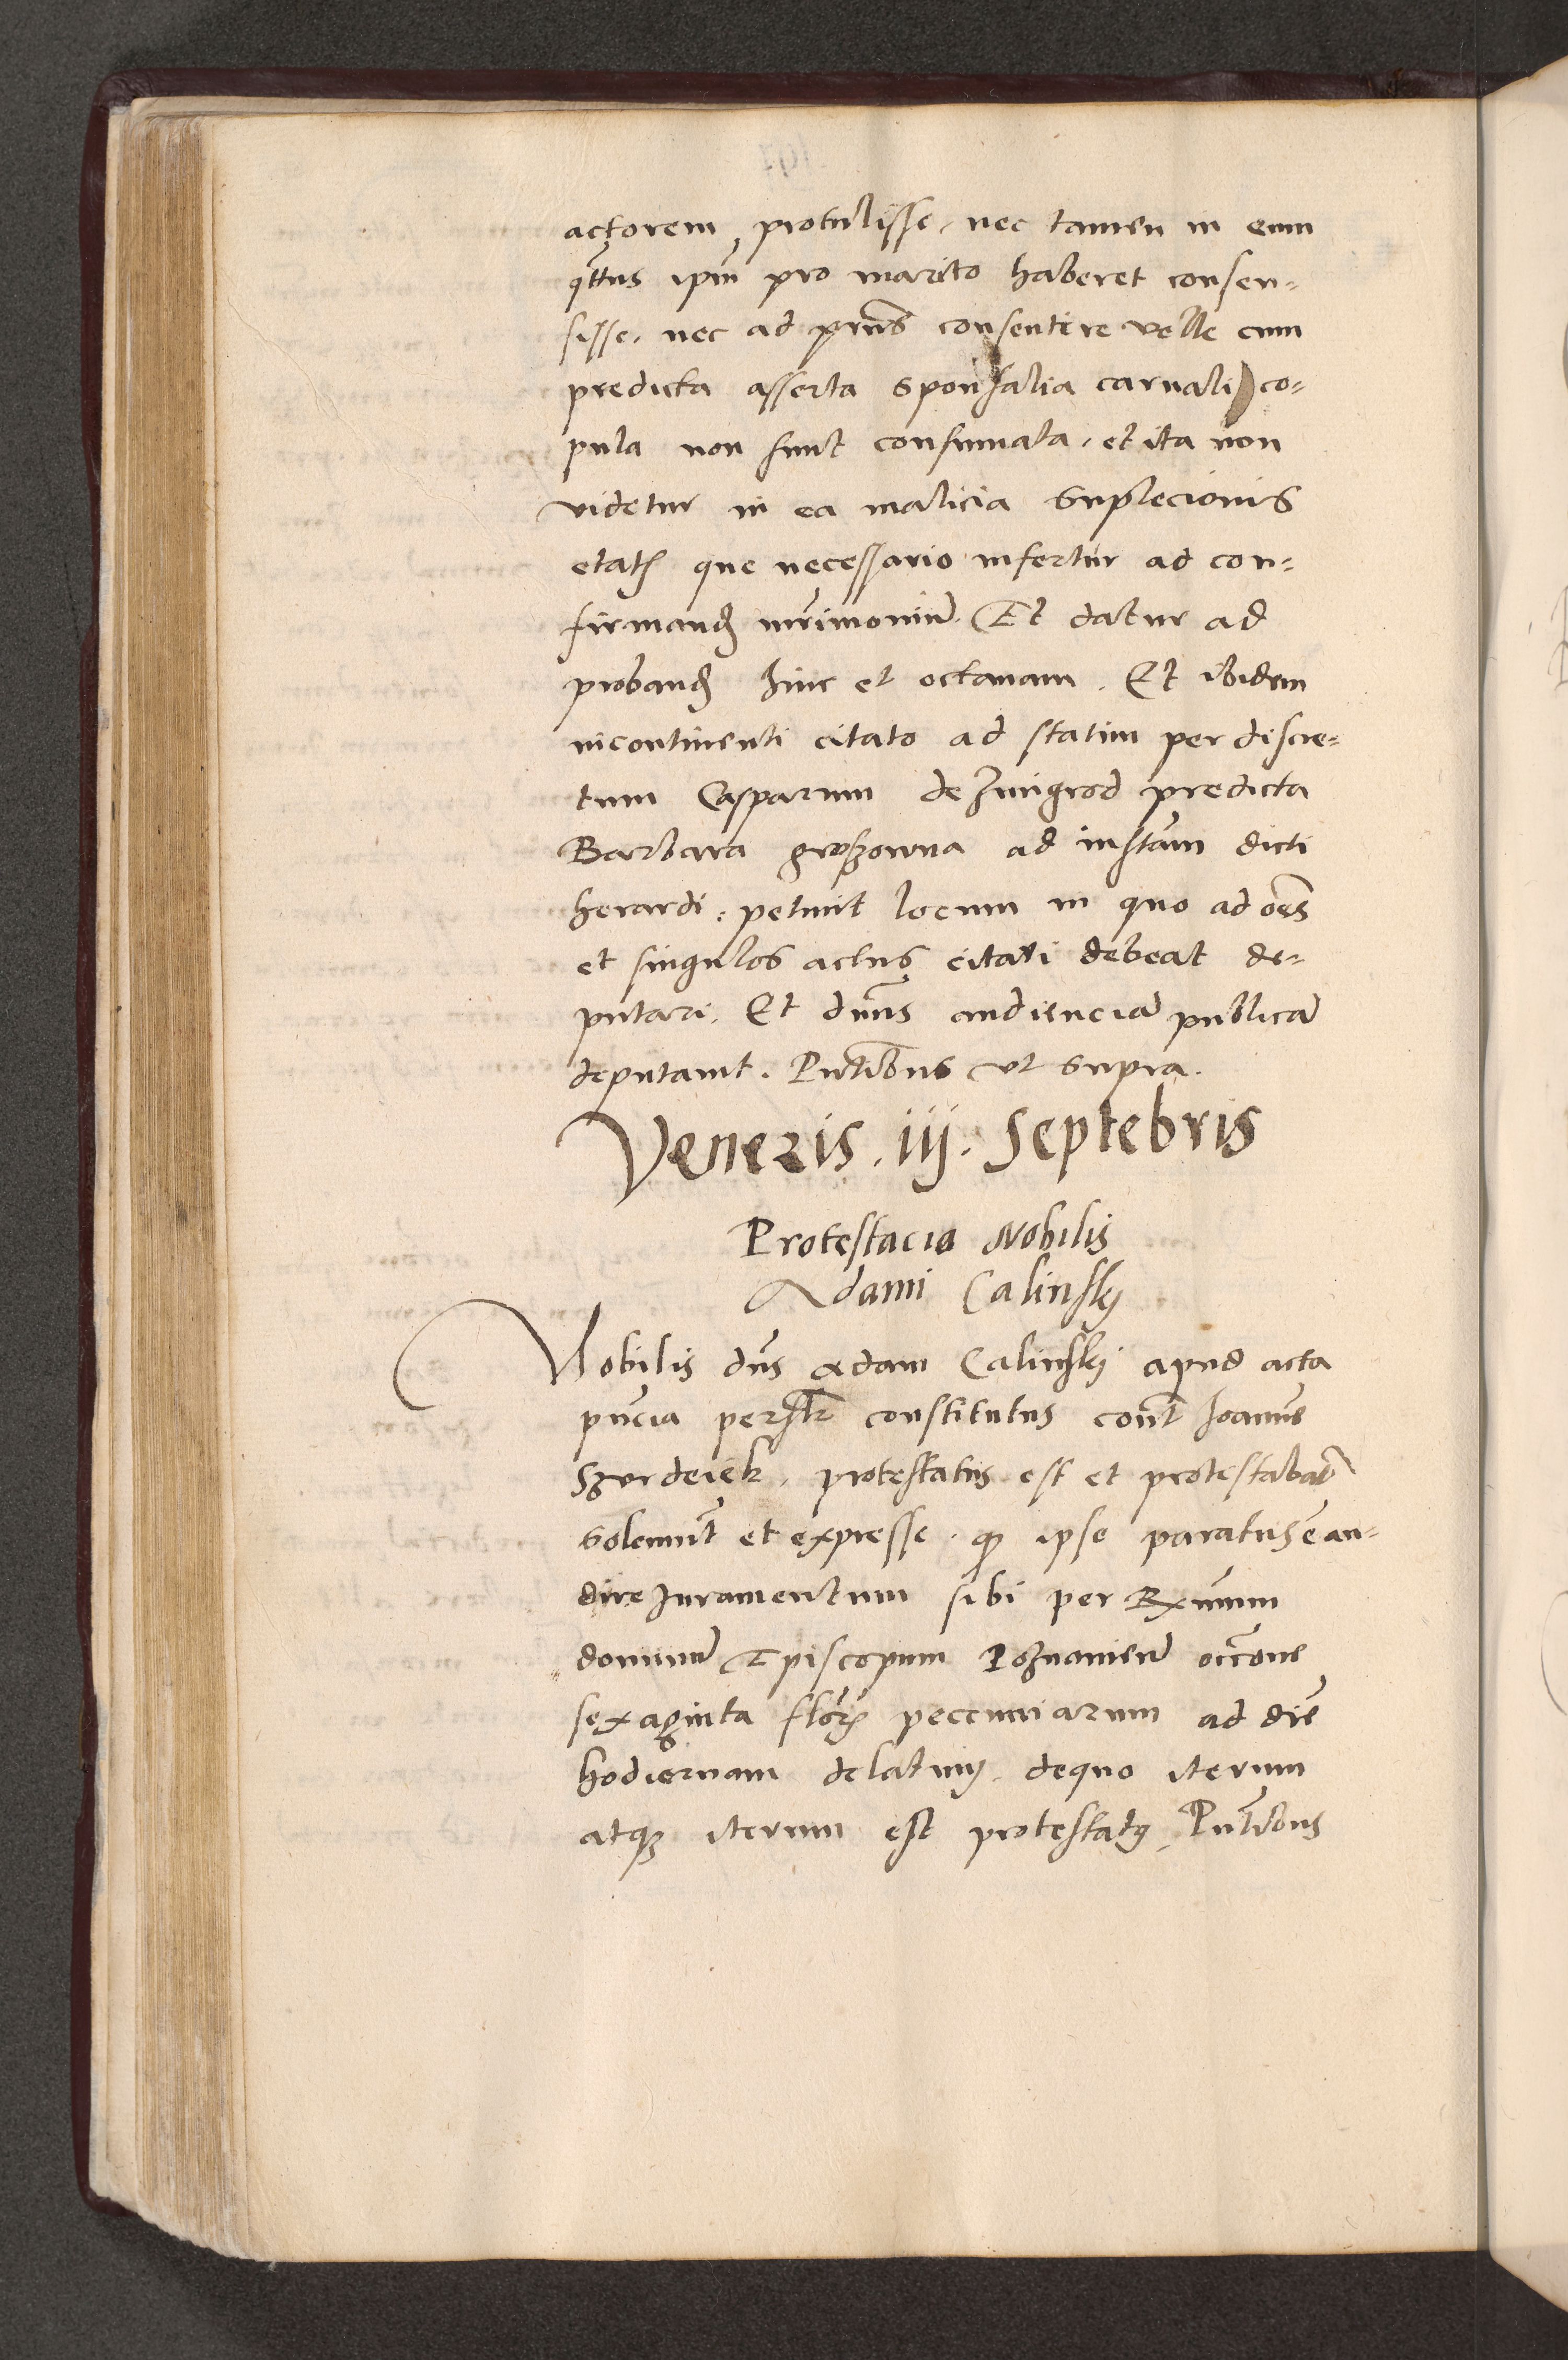 actorem protulisse, nec tamen in eum
q̃tus ipm̃ pro marito haberet consen=
sisse, nec ad prñs consentire velle cum
predicta asserta sponsalia carnali co=
pula non sunt consumata, et ita non
videtur in ea malicia suplecionis
etatꝭ que necessario infertur ad con=
firmandꝭ mr̃imoniũ. Et datur ad
probandꝭ hinc et octavam. Et ibidem
incontinenti citato ad statim per discre=
tum Casparum de Zmigrod predicta
Barbara groszowna ad instam̃ dicti
herardi: petiuit locum in quo ad oẽs
et singulos actus citari debeat de=
putari. Et dñus audienciã publicã
deputauit. Pñtibus vt supra.
Veneris .iij. Septebris
Protestacio Nobilis
Adami Calinskÿ
Nobilis dñs Adam Calinskÿ apud acta
pñcia perstr̃ constitutus cont̃ Joannẽ
protestatus est et protestabat̃
solennit̃ et expresse. ꝙ ipse paratus ẽ au=
dire Juramentum sibi per Rx̃mum
dominũ Episcopum Poznanieñ occ̃one
sexaginta flor̃ꝭ peccuniarum ad diẽ
hodiernam delatum, dequo iterum
atqꝫ iterum est protestatꝰ, Pñtibus